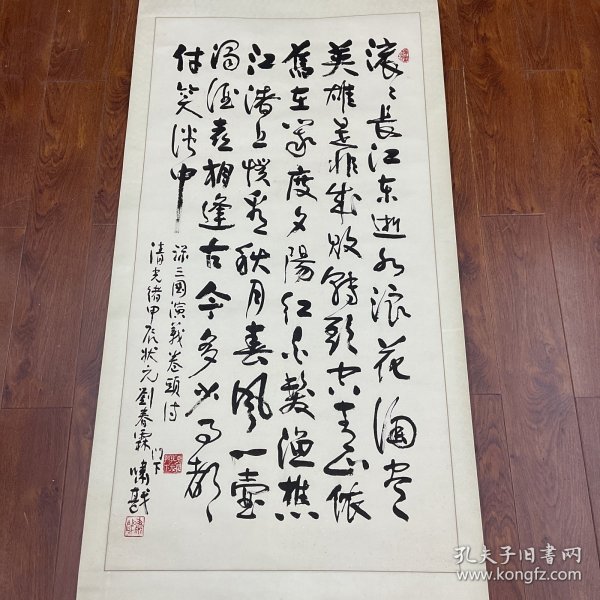 滚〻長江东逝水浪花淘尽
英雄是非成败转头空青山依
舊在几度夕陽红白髮渔樵
江渚上惯看秋月春風一壶
濁酒喜相逢古今多少事都〻
付笑谈中
录三國演義卷頭诗
清光緒甲辰状元劉春霖门下
嘯戡
孔夫子旧書网
www.kongfz.com